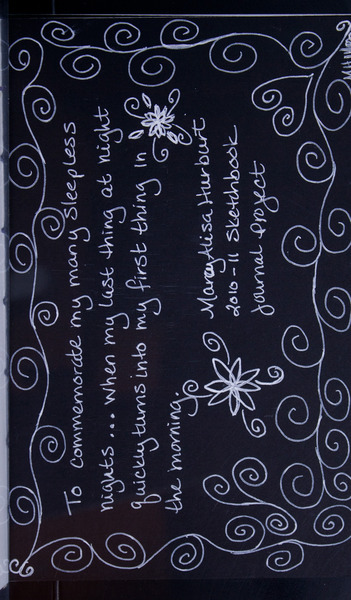 To commemorate my many sleepless
nights... when my last thing at night
quickly turns into my first thing in
the morning.
Marcy Alisa Hurburt
2010-11 Sketchbook
Journal Project